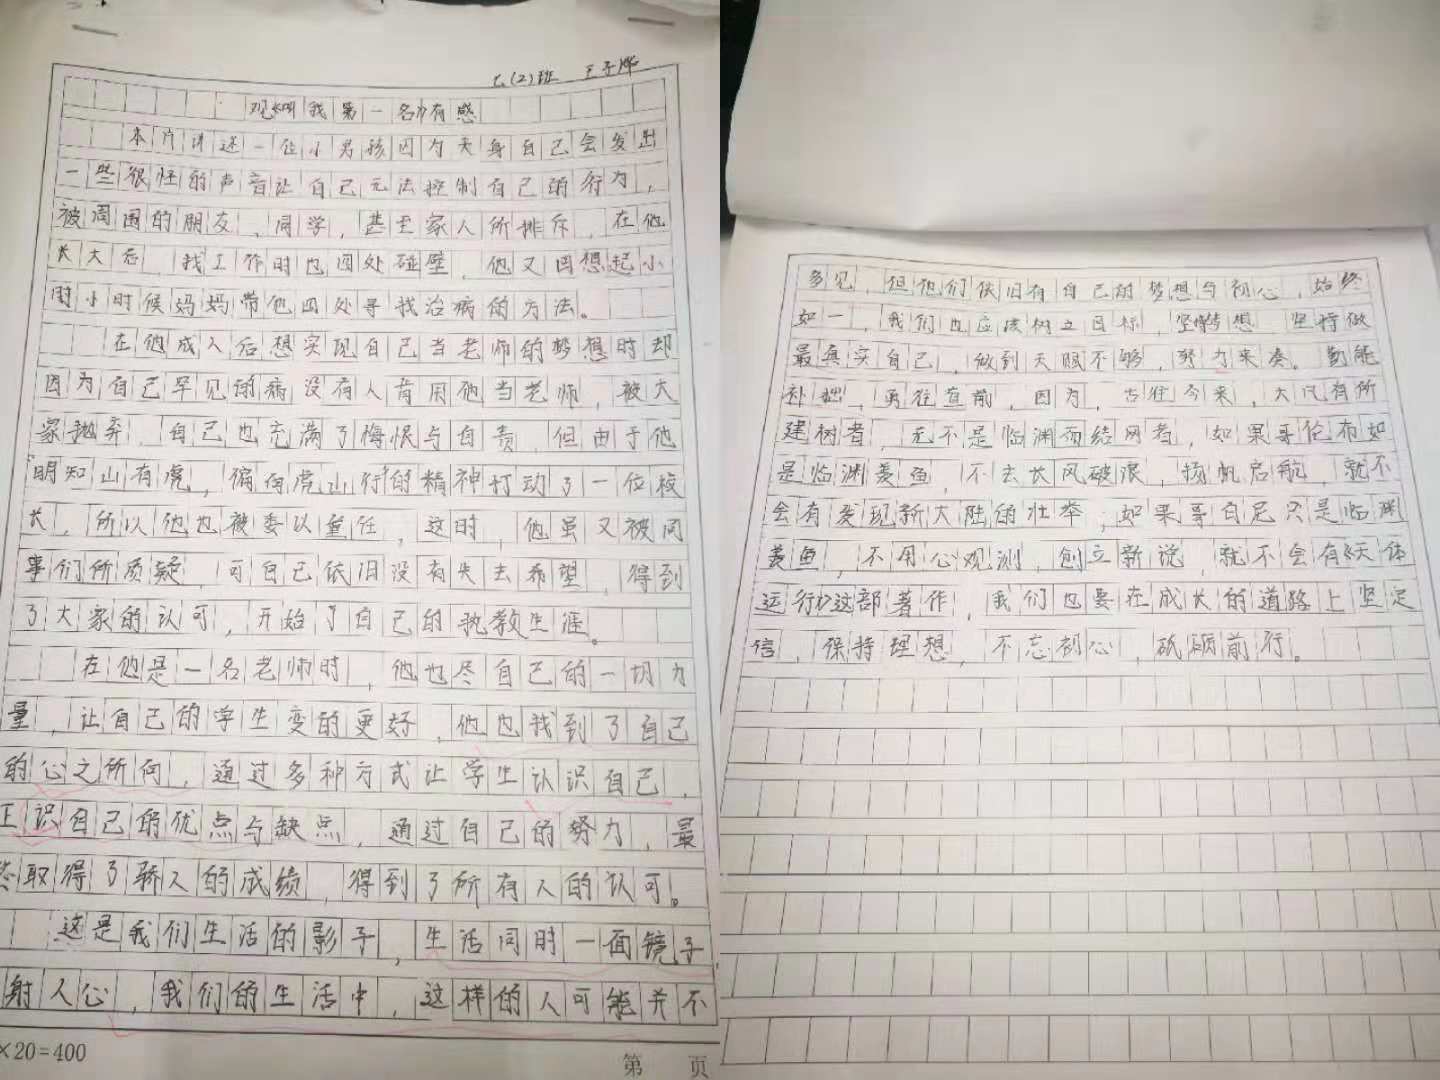 七(2)班 王子烨
观《叫我第一名》有感
本片讲述一位小男孩因为天身自己会发出
一些很怪的声音让自己无法控制自己的行为，
被周围的朋友，同学，甚至家人所排斥，在他
长大后，找工作时也四处碰壁，他又回想起小
时小时候妈妈带他四处寻找治病的方法。
在他成人后想实现自己当老师的梦想时却
因为自己罕见的病没有人肯用他当老师，被大
家抛弃，自己也充满了悔恨与自责，但由于他
“明知山有虎，偏向虎山行”的精神打动了一位校
长，所以他也被委以重任，这时，他虽又被同
事们所质疑，可自己依旧没有失去希望，得到
了大家的认可，开始了自己的执教生涯。
在他是一名老师时，他也尽自己的一切力
量，让自己的学生变的更好，他也找到了自己
的心之所向，通过多种方式让学生认识自己，
正识自己的优点与缺点，通过自己的努力，最
终取得了骄人的成绩，得到了所有人的认可。
这是我们生活的影子，生活同时一面镜子，
射人心，我们的生活中，这样的人可能并不
×20=400
第 页
多见，但他们依旧有自己的梦想与初心，始终
如一，我们也应该树立目标，坚梦想，坚持做
最真实自己，做到天赋不够，努力来凑。勤能
补拙，勇往直前，因为，古往今来，大凡有所
建树者，无不是临渊而结网者，如果哥伦布如
是临渊羡鱼，不去长风破浪，扬帆启航，就不
会有发现新大陆的壮举；如果哥白尼只是临渊
羡鱼，不用心观测，创立新说，就不会有《天体
运行》这部著作，我们也要在成长的道路上坚定
信，保持理想，不忘初心，砥砺前行。